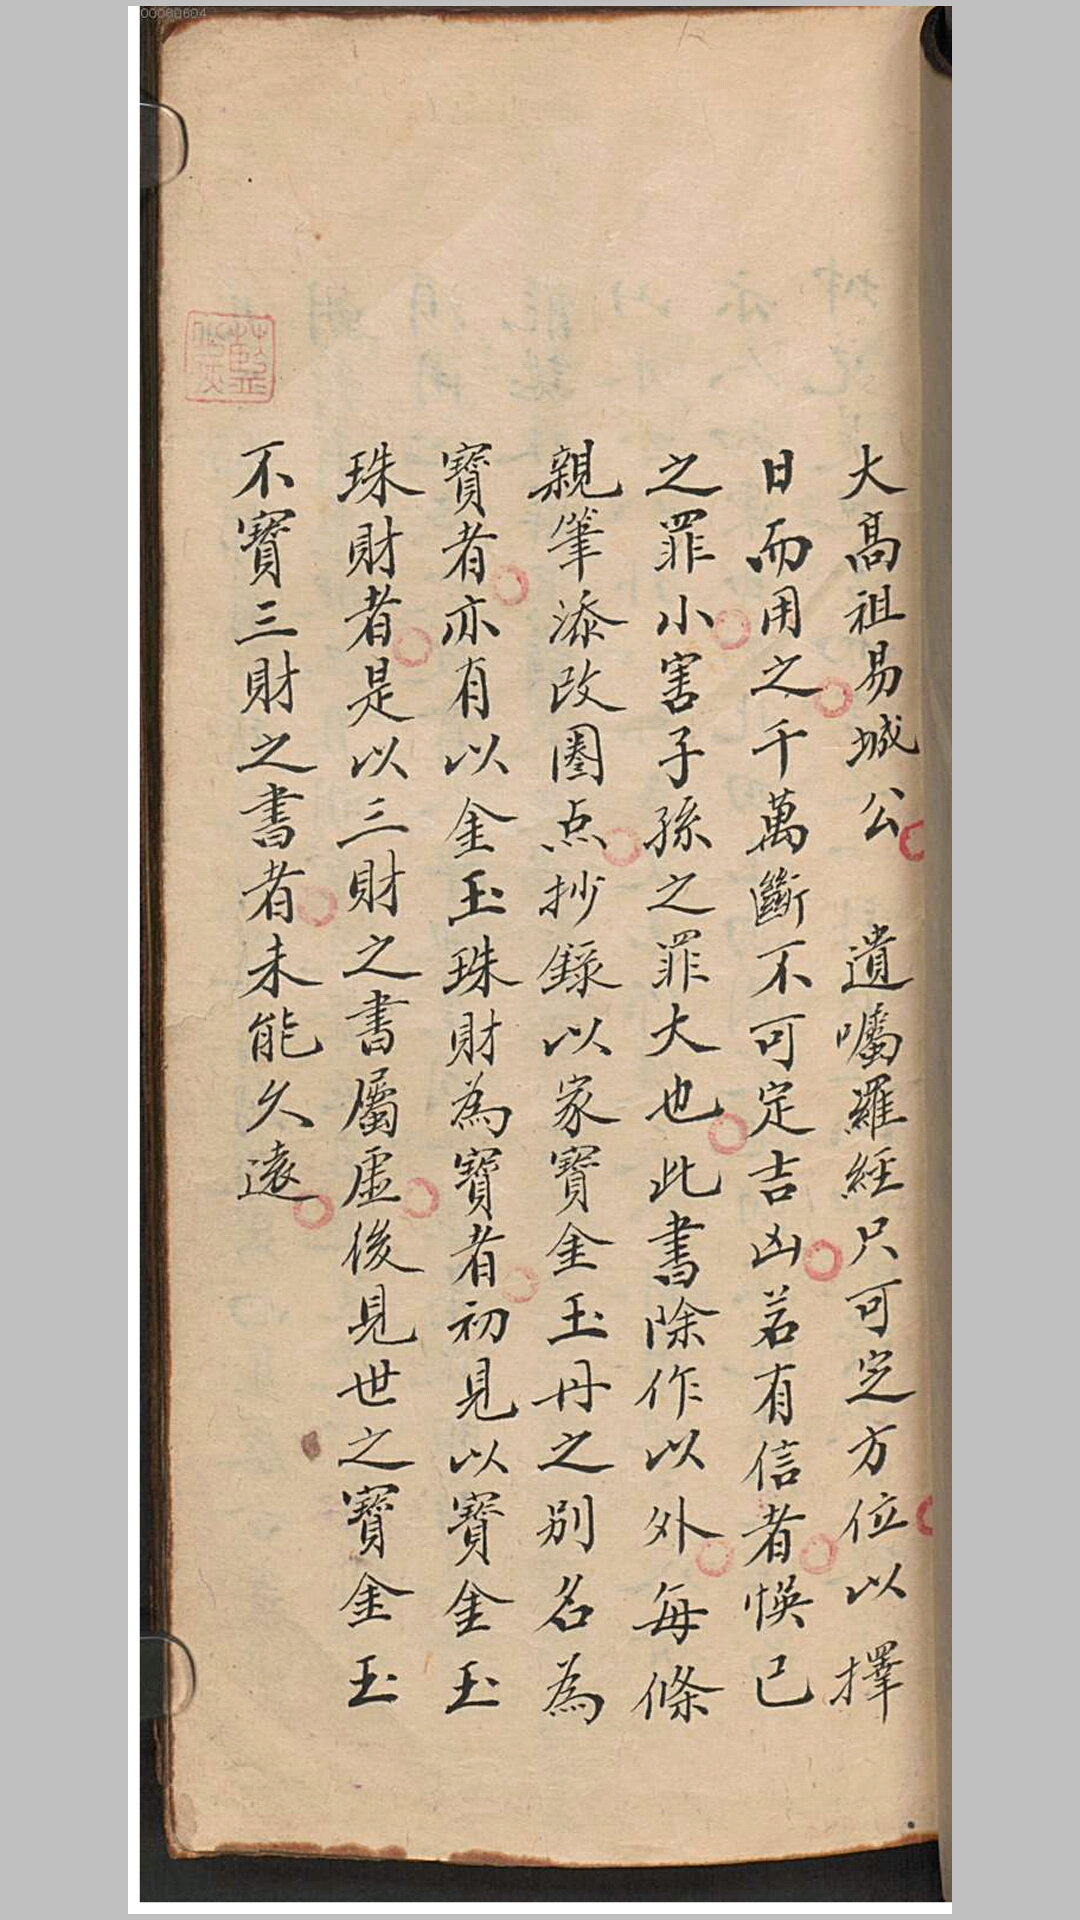 大高祖易城公　遺囑羅經只可定方位以擇
日而用之千萬斷不可定吉凶若有信者悞己
之罪小害子孫之罪大也此書除作以外每條
親筆添改圈点抄錄以家寶金玉丹之別名為
寶者亦有以金玉珠財為寶者初見以寶金玉
珠財者是以三財之書屬虛後見世之寶金玉
不寶三財之書者未能久遠
00080604